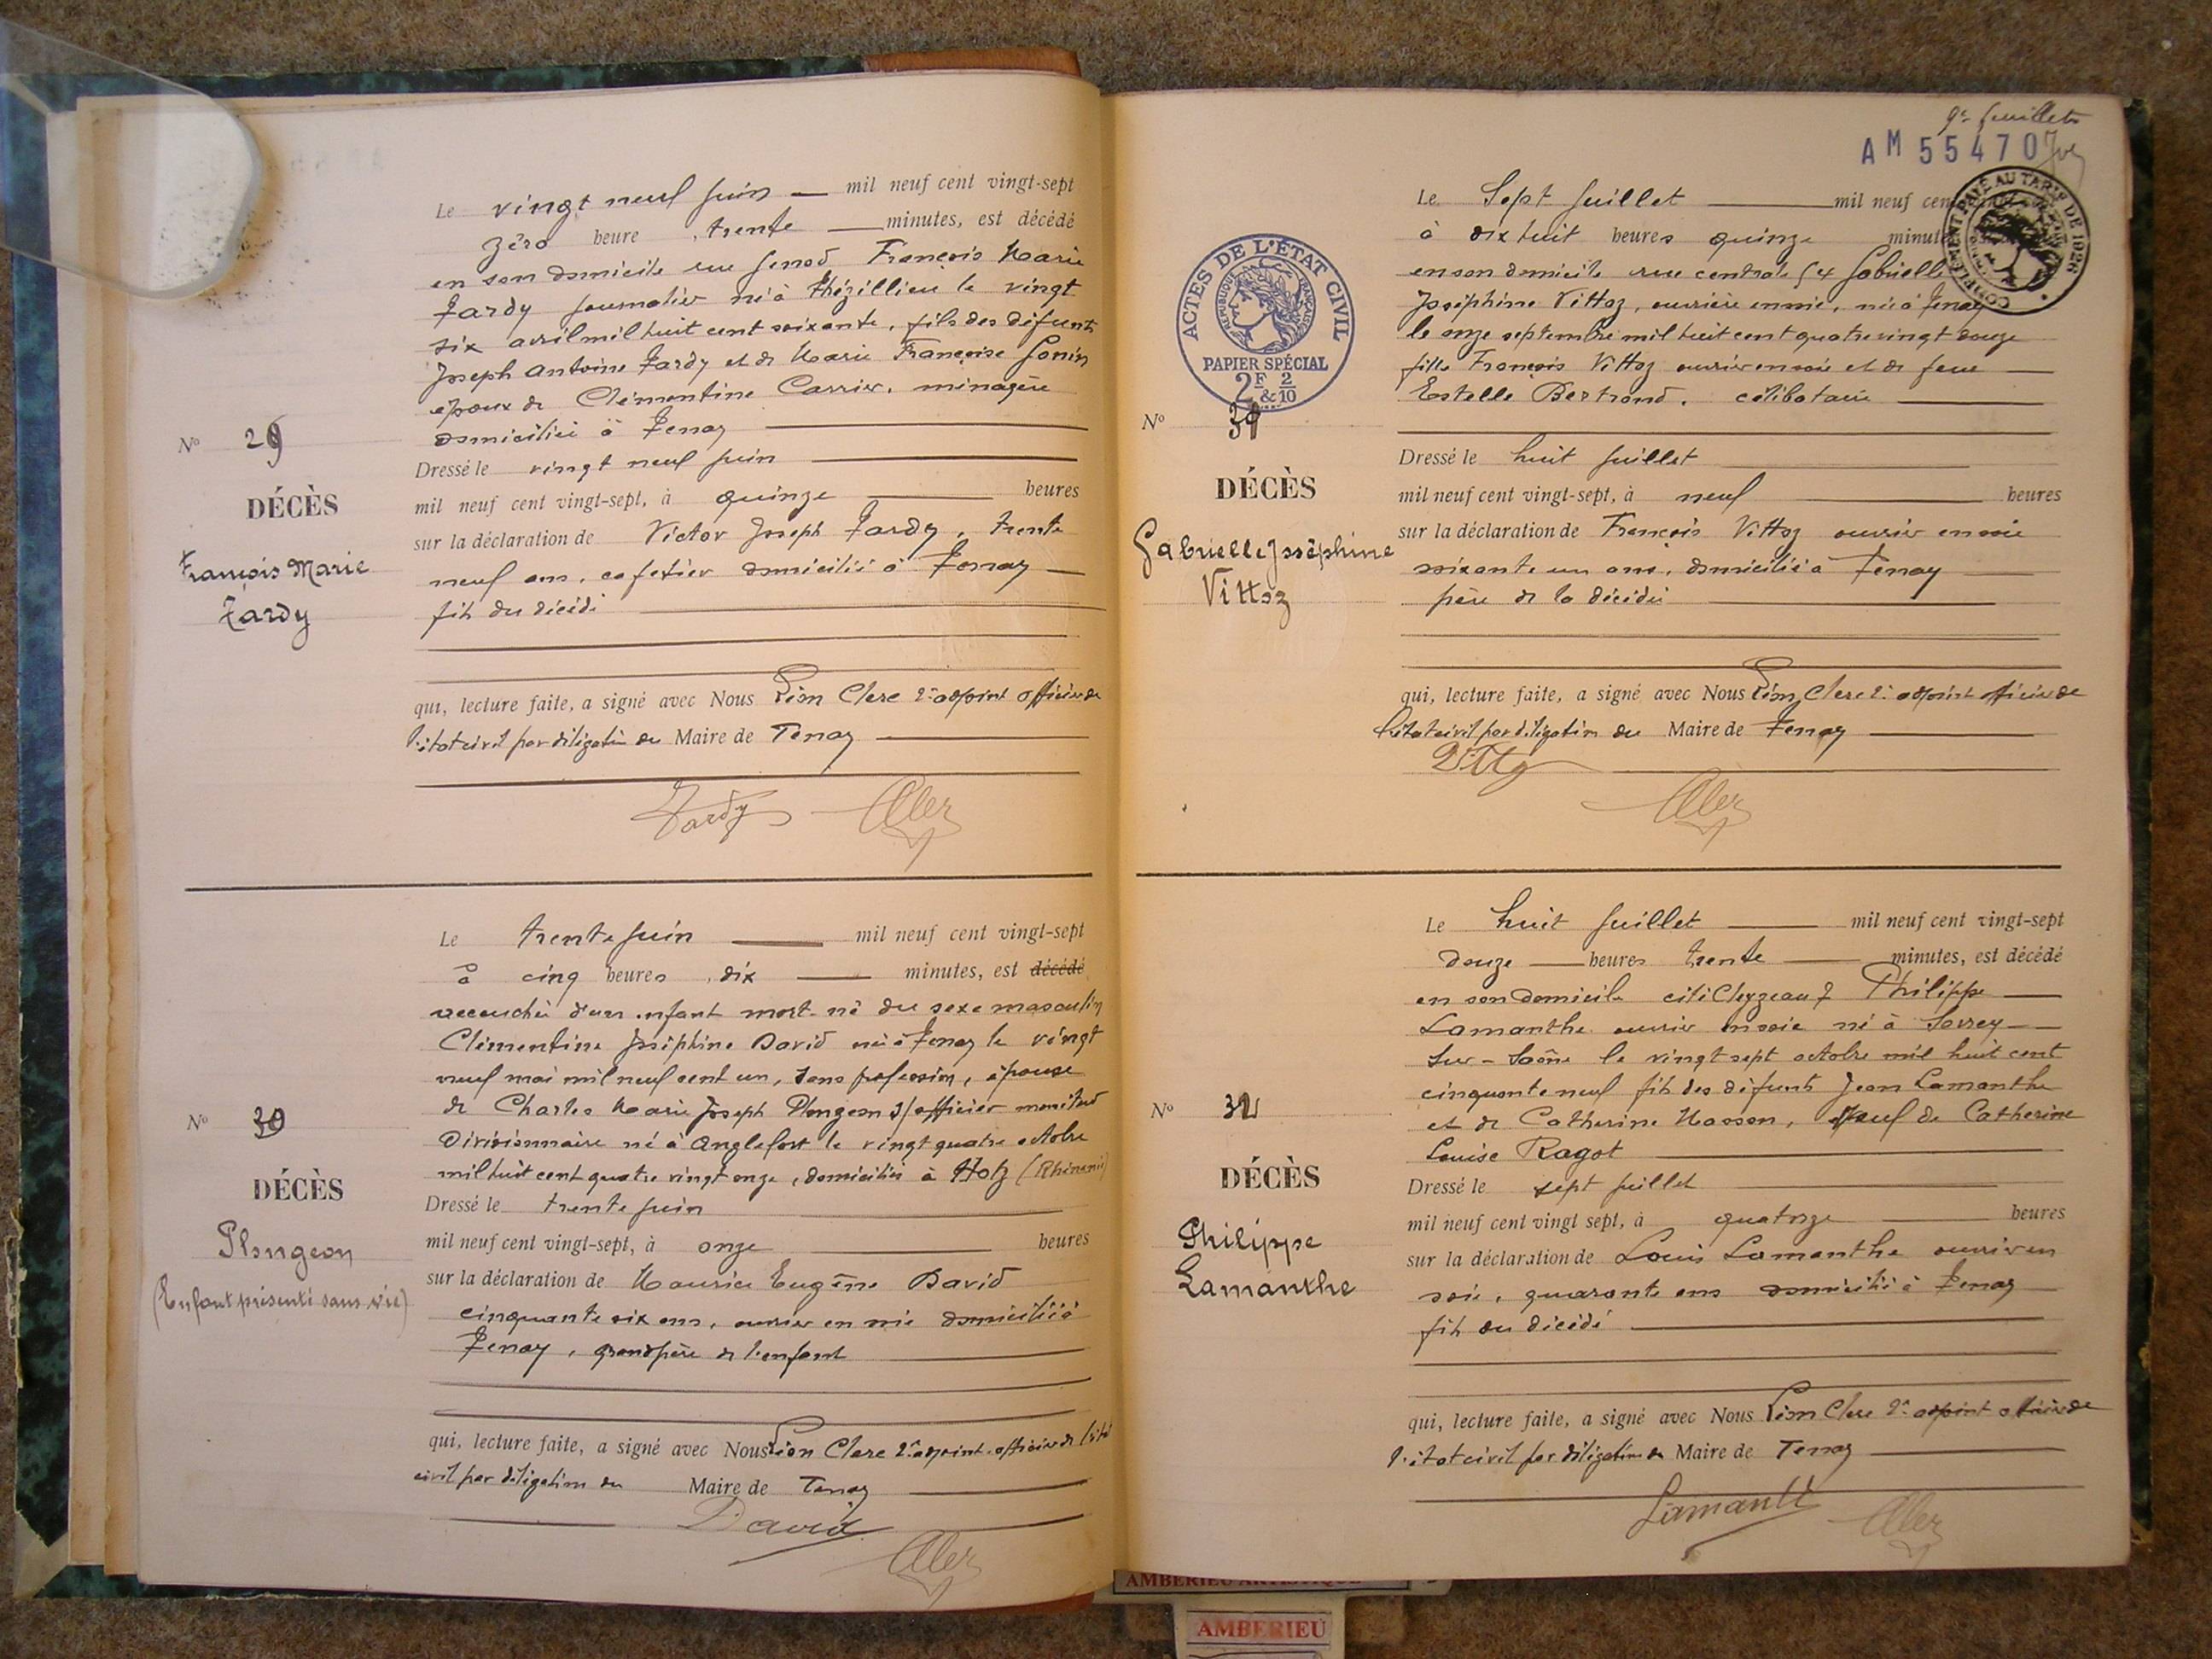 Le vingt neuf juin — mil neuf cent vingt-sept
zéro heure, trente — minutes, est décédé
en son domicile rue Genod François Marie
Tardy journalier né à Thézillieu le vingt
six avril mil huit cent soixante, fils des défunts
Joseph Antoine Tardy et de Marie Françoise Gonin
époux de Clémentine Carrier, ménagère
domicilié à Tenay
Dressé le vingt neuf juin
mil neuf cent vingt-sept, à quinze heures
sur la déclaration de Victor Joseph Tardy, trente
neuf ans, cafetier domicilié à Tenay
fils du décédé
qui, lecture faite, a signé avec Nous Léon Clerc 2e adjoint officier de
l'état civil par délégation du Maire de Tenay
Tardy
Clerc
No 29
DÉCÈS
François Marie
Tardy
Le trente juin — mil neuf cent vingt-sept
à cinq heures, dix — minutes, est décédé
accouchée d'un enfant mort-né du sexe masculin
Clémentine Joséphine David née à Tenay le vingt
neuf mai mil neuf cent un, sans profession, épouse
de Charles Marie Joseph Plongeon s/officier
Divisionnaire né à Anglefort le vingt quatre octobre
mil huit cent quatre vingt onze, domiciliés à (Rhénanie)
Dressé le trente juin
mil neuf cent vingt-sept, à onze heures
sur la déclaration de Maurice Eugène David
cinquante six ans, ouvrier en soie domicilié à
Tenay, grand père de l'enfant
qui, lecture faite, a signé avec Nous Léon Clerc 2e adjoint officier de l'état
civil par délégation du Maire de Tenay
David
Clerc
No 30
DÉCÈS
Plongeon
(Enfant présenté sans vie)
9e feuillet
AM 55470
COMPLÉMENT PAYÉ AU TARIF DE 1926
ACTES DE L'ÉTAT CIVIL
RÉPUBLIQUE FRANÇAISE
PAPIER SPÉCIAL
2F & 2/10
Le Sept juillet — mil neuf cent
à dix huit heures quinze minutes
en son domicile rue centrale 54 Gabrielle
Joséphine Vittoz, ouvrière en soie, née à Tenay
le onze septembre mil huit cent quatre vingt douze
fille François Vittoz ouvrier en soie et de feue
Estelle Bertrand. célibataire
Dressé le huit juillet
mil neuf cent vingt-sept, à neuf heures
sur la déclaration de François Vittoz ouvrier en soie
soixante un ans, domicilié à Tenay
père de la décédée
qui, lecture faite, a signé avec Nous Léon Clerc 2e adjoint officier de
l'état civil par délégation du Maire de Tenay
Vittoz
Clerc
No 31
DÉCÈS
Gabrielle Joséphine
Vittoz
Le huit juillet — mil neuf cent vingt-sept
douze — heures trente — minutes, est décédé
en son domicile cité Cleyzeau 7 Philippe
Lamanthe ouvrier en soie né à Savrey
sur-Saône le vingt sept octobre mil huit cent
cinquante neuf fils des défunts Jean Lamanthe
et de Catherine Masson, veuf de Catherine
Louise Ragot
Dressé le sept juillet
mil neuf cent vingt sept, à quatorze heures
sur la déclaration de Louis Lamanthe ouvrier en
soie, quarante ans domicilié à Tenay
fils du décédé
qui, lecture faite, a signé avec Nous Léon Clerc 2e adjoint officier de
l'état civil par délégation du Maire de Tenay
Lamanthe
Clerc
No 32
DÉCÈS
Philippe
Lamanthe
AMBERIEU ARTISTIQUE
AMBERIEU